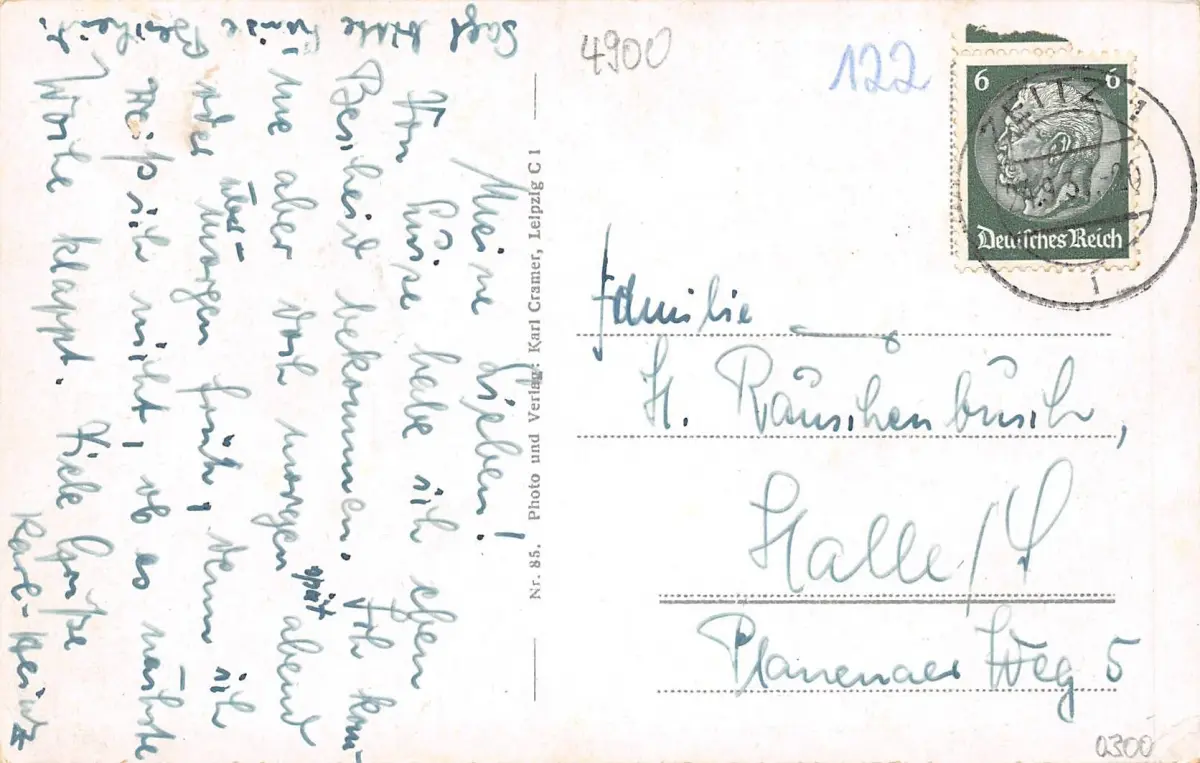 Sagt bitte Luise
Bescheid.
Meine Lieben!
Von Luise habe ich eben
Bescheid bekommen. Ich kom-
me aber doch morgen spät abend
oder über-morgen früh, denn ich
weiß ich nicht, ob es nächste
Woche klappt. Viele Grüße
Karl-Heinz
Nr. 85. Photo und Verlag: Karl Cramer, Leipzig C 1
4900
122
6 6
Deutsches Reich
ZEITZ 1
Familie
H. Rauschenbusch,
Halle/S
Planenaer Weg 5
0300